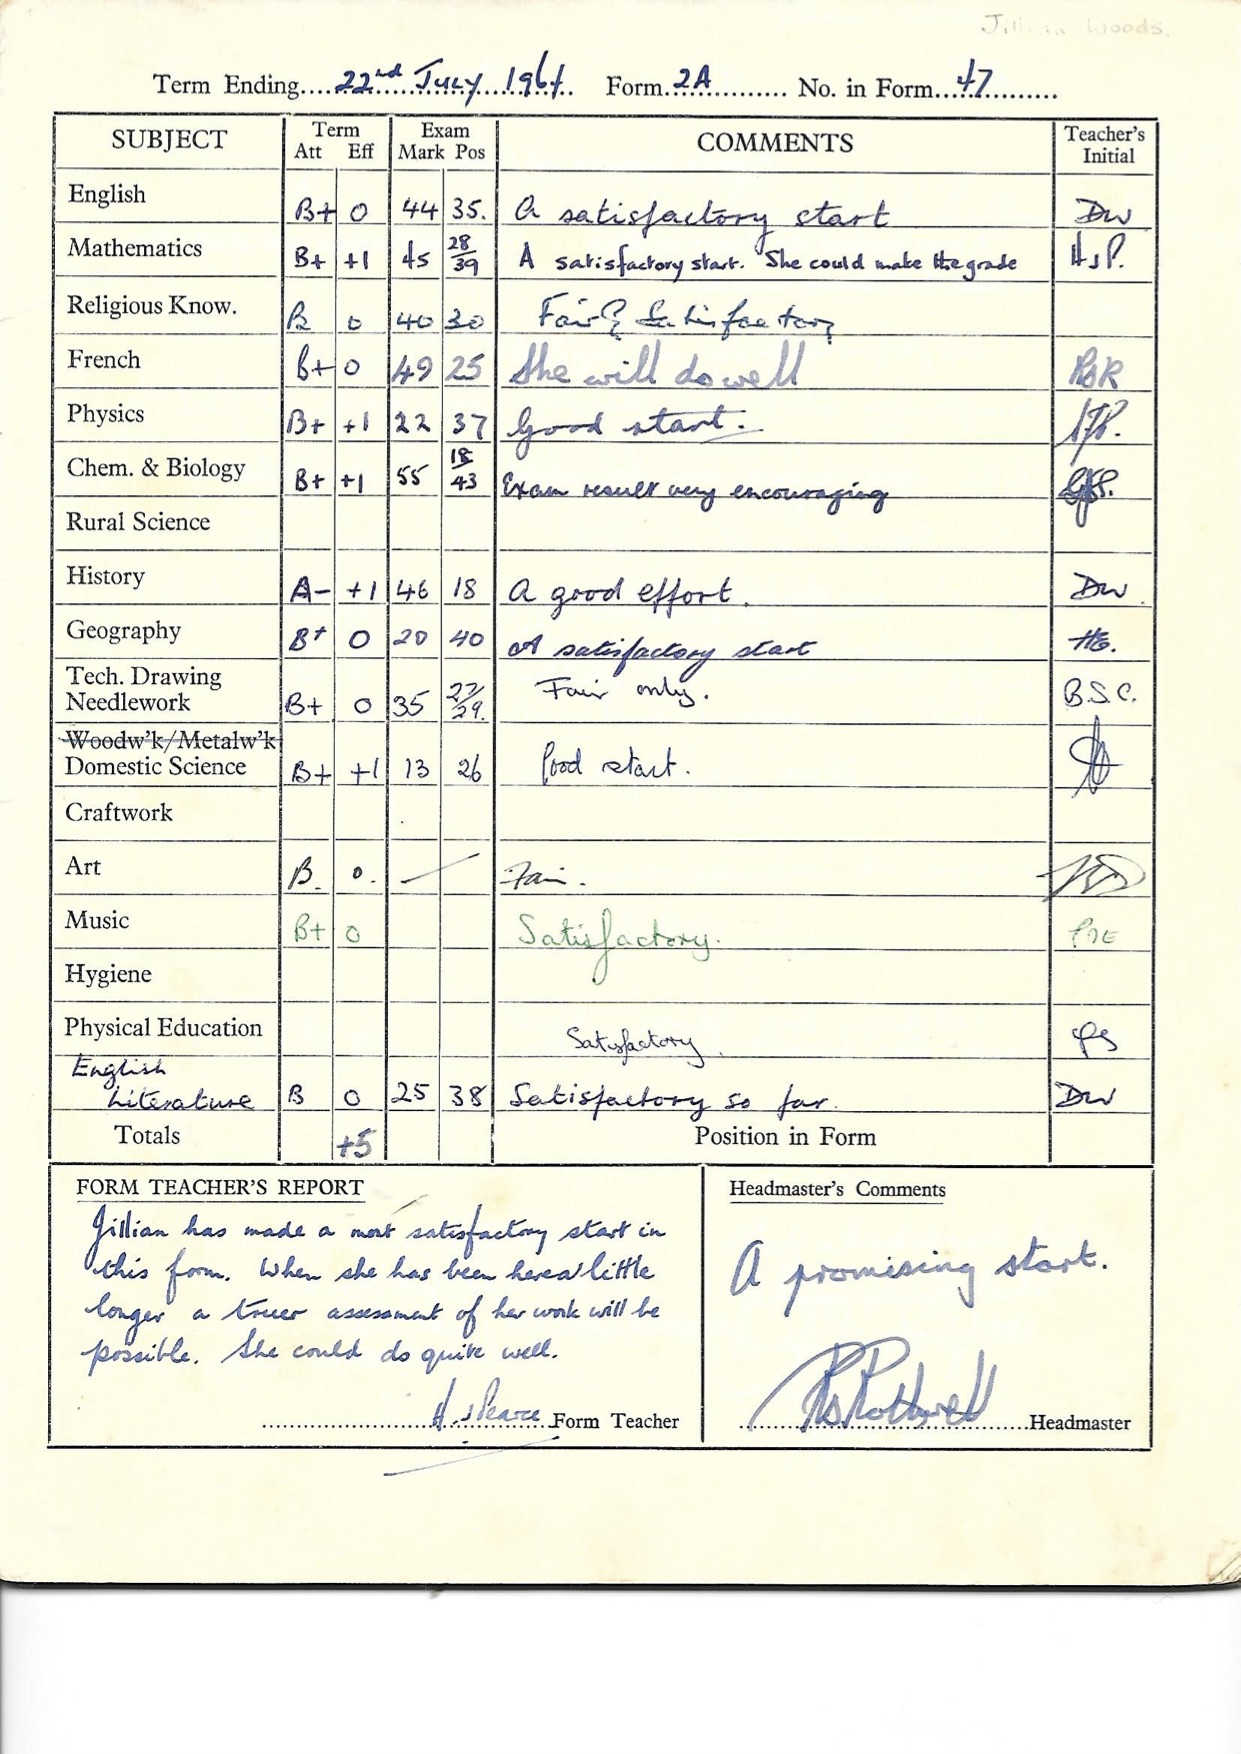 Jillian Woods.
Term Ending....22nd July 1964. Form 2A............ No. in Form...47..........
SUBJECT Term Att Eff Exam Mark Pos COMMENTS Teacher's Initial
English B+ 0 44 35. A satisfactory start DW
Mathematics B+ +1 45 28/39 A satisfactory start. She could make the grade HJP.
Religious Know. B 0 40 30 Fair & Satisfactory
French B+ 0 49 25 She will do well RBR
Physics B+ +1 22 37 Good start.
Chem. & Biology B+ +1 55 18/43 Exam result very encouraging
Rural Science
History A- +1 46 18 A good effort. DW
Geography B+ 0 20 40 A satisfactory start HE.
Tech. Drawing
Needlework B+ 0 35 27/29. Fair only. B.S.C.
Woodw'k/Metalw'k
Domestic Science B+ +1 13 26 Good start.
Craftwork
Art B. 0. Fair.
Music B+ 0 Satisfactory.
Hygiene
Physical Education Satisfactory.
English
Literature B 0 25 38 Satisfactory so far. DW
Totals +5 Position in Form
FORM TEACHER'S REPORT
Jillian has made a most satisfactory start in
this form. When she has been here a little
longer a truer assessment of her work will be
possible. She could do quite well.
H. J Pearce Form Teacher
Headmaster's Comments
A promising start.
Rothwell Headmaster